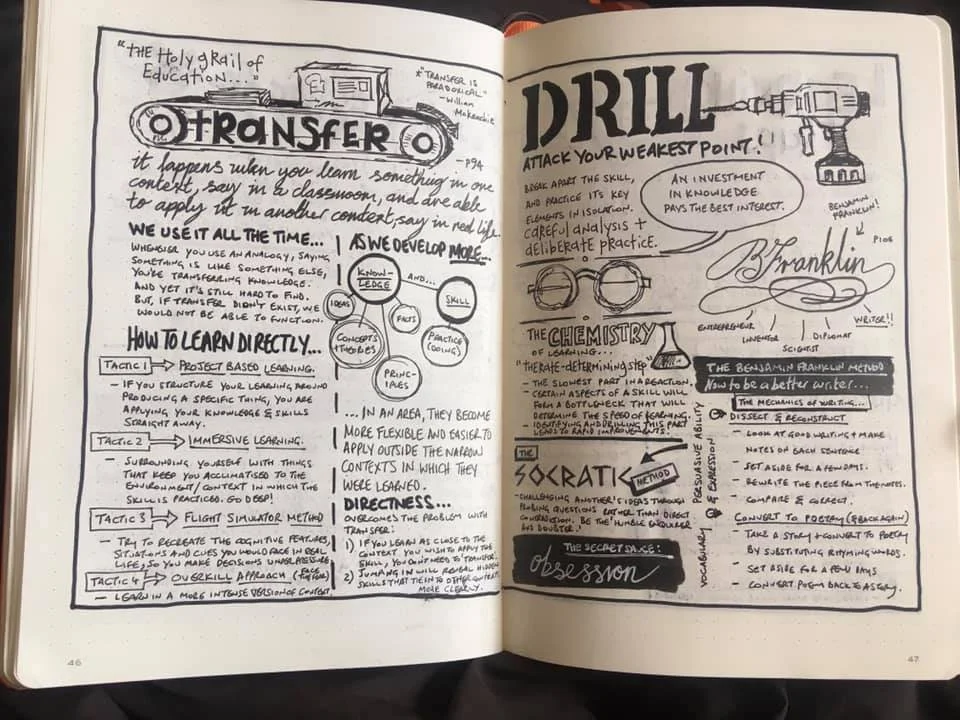 "THE HOLY GRAIL OF
EDUCATION..."
*"TRANSFER IS
PARADOXICAL"
- William
McKeachie
TRANSFER
- P94
it happens when you learn something in one
context, say in a classroom, and are able
to apply it in another context, say in real life.
WE USE IT ALL THE TIME...
WHENEVER YOU USE AN ANALOGY, SAYING
SOMETHING IS LIKE SOMETHING ELSE,
YOU'RE TRANSFERRING KNOWLEDGE.
AND YET IT'S STILL HARD TO FIND.
BUT, IF TRANSFER DIDN'T EXIST, WE
WOULD NOT BE ABLE TO FUNCTION.
HOW TO LEARN DIRECTLY...
TACTIC 1 PROJECT BASED LEARNING.
- IF YOU STRUCTURE YOUR LEARNING AROUND
PRODUCING A SPECIFIC THING, YOU ARE
APPLYING YOUR KNOWLEDGE & SKILLS
STRAIGHT AWAY.
TACTIC 2 IMMERSIVE LEARNING.
- SURROUNDING YOURSELF WITH THINGS
THAT KEEP YOU ACCLIMATISED TO THE
ENVIRONMENT/CONTEXT IN WHICH THE
SKILL IS PRACTICED. GO DEEP!
TACTIC 3 FLIGHT SIMULATOR METHOD
- TRY TO RECREATE THE COGNITIVE FEATURES,
SITUATIONS AND CUES YOU WOULD FACE IN REAL
LIFE, SO YOU MAKE DECISIONS UNDER PRESSURE
TACTIC 4 OVERKILL APPROACH (FACE THE FEAR)
- LEARN IN A MORE INTENSE VERSION OF CONTEXT.
AS WE DEVELOP MORE...
KNOW-
LEDGE
AND...
SKILL
IDEAS
FACTS
CONCEPTS
+THEORIES
PRACTICE
(DOING)
PRINC-
IPLES
...IN AN AREA, THEY BECOME
MORE FLEXIBLE AND EASIER TO
APPLY OUTSIDE THE NARROW
CONTEXTS IN WHICH THEY
WERE LEARNED.
DIRECTNESS...
OVERCOMES THE PROBLEM WITH
TRANSFER:
1) IF YOU LEARN AS CLOSE TO THE
CONTEXT YOU WISH TO APPLY THE
SKILL, YOU DON'T NEED TO 'TRANSFER'.
2) JUMPING IN WILL REVEAL HIDDEN
SKILLS THAT TIE IN TO OTHER CONTEXTS
MORE CLEARLY.
46
DRILL
ATTACK YOUR WEAKEST POINT!
BREAK APART THE SKILL,
AND PRACTICE ITS KEY
ELEMENTS IN ISOLATION.
careful analysis +
deliberate practice.
AN INVESTMENT
IN KNOWLEDGE
PAYS THE BEST INTEREST.
BENJAMIN
FRANKLIN!
P106
B Franklin
ENTREPRENEUR
INVENTOR
SCIENTIST
DIPLOMAT
WRITER!!
THE CHEMISTRY
OF LEARNING...
"THE RATE-DETERMINING STEP"
- THE SLOWEST PART IN A REACTION.
- CERTAIN ASPECTS OF A SKILL WILL
FORM A BOTTLENECK THAT WILL
DETERMINE THE SPEED OF LEARNING.
- IDENTIFYING AND DRILLING THIS PART
LEADS TO RAPID IMPROVEMENTS!
THE
SOCRATIC
METHOD
- CHALLENGING ANOTHER'S IDEAS THROUGH
PROBING QUESTIONS RATHER THAN DIRECT
CONTRADICTION. BE THE 'HUMBLE ENQUIRER
AND DOUBTER'!
THE SECRET SAUCE:
obsession
THE BENJAMIN FRANKLIN METHOD
How to be a better writer...
THE MECHANICS OF WRITING...
PERSUASIVE ABILITY
& EXPRESSION
DISSECT & RECONSTRUCT
- LOOK AT GOOD WRITING + MAKE
NOTES OF EACH SENTENCE
- SET ASIDE FOR A FEW DAYS.
- REWRITE THE PIECE FROM THE NOTES.
- COMPARE & CORRECT.
VOCABULARY
CONVERT TO POETRY (& BACK AGAIN)
- TAKE A STORY + CONVERT TO POETRY
BY SUBSTITUTING RHYMING WORDS.
- SET ASIDE FOR A FEW DAYS
- CONVERT POEM BACK TO A STORY.
47